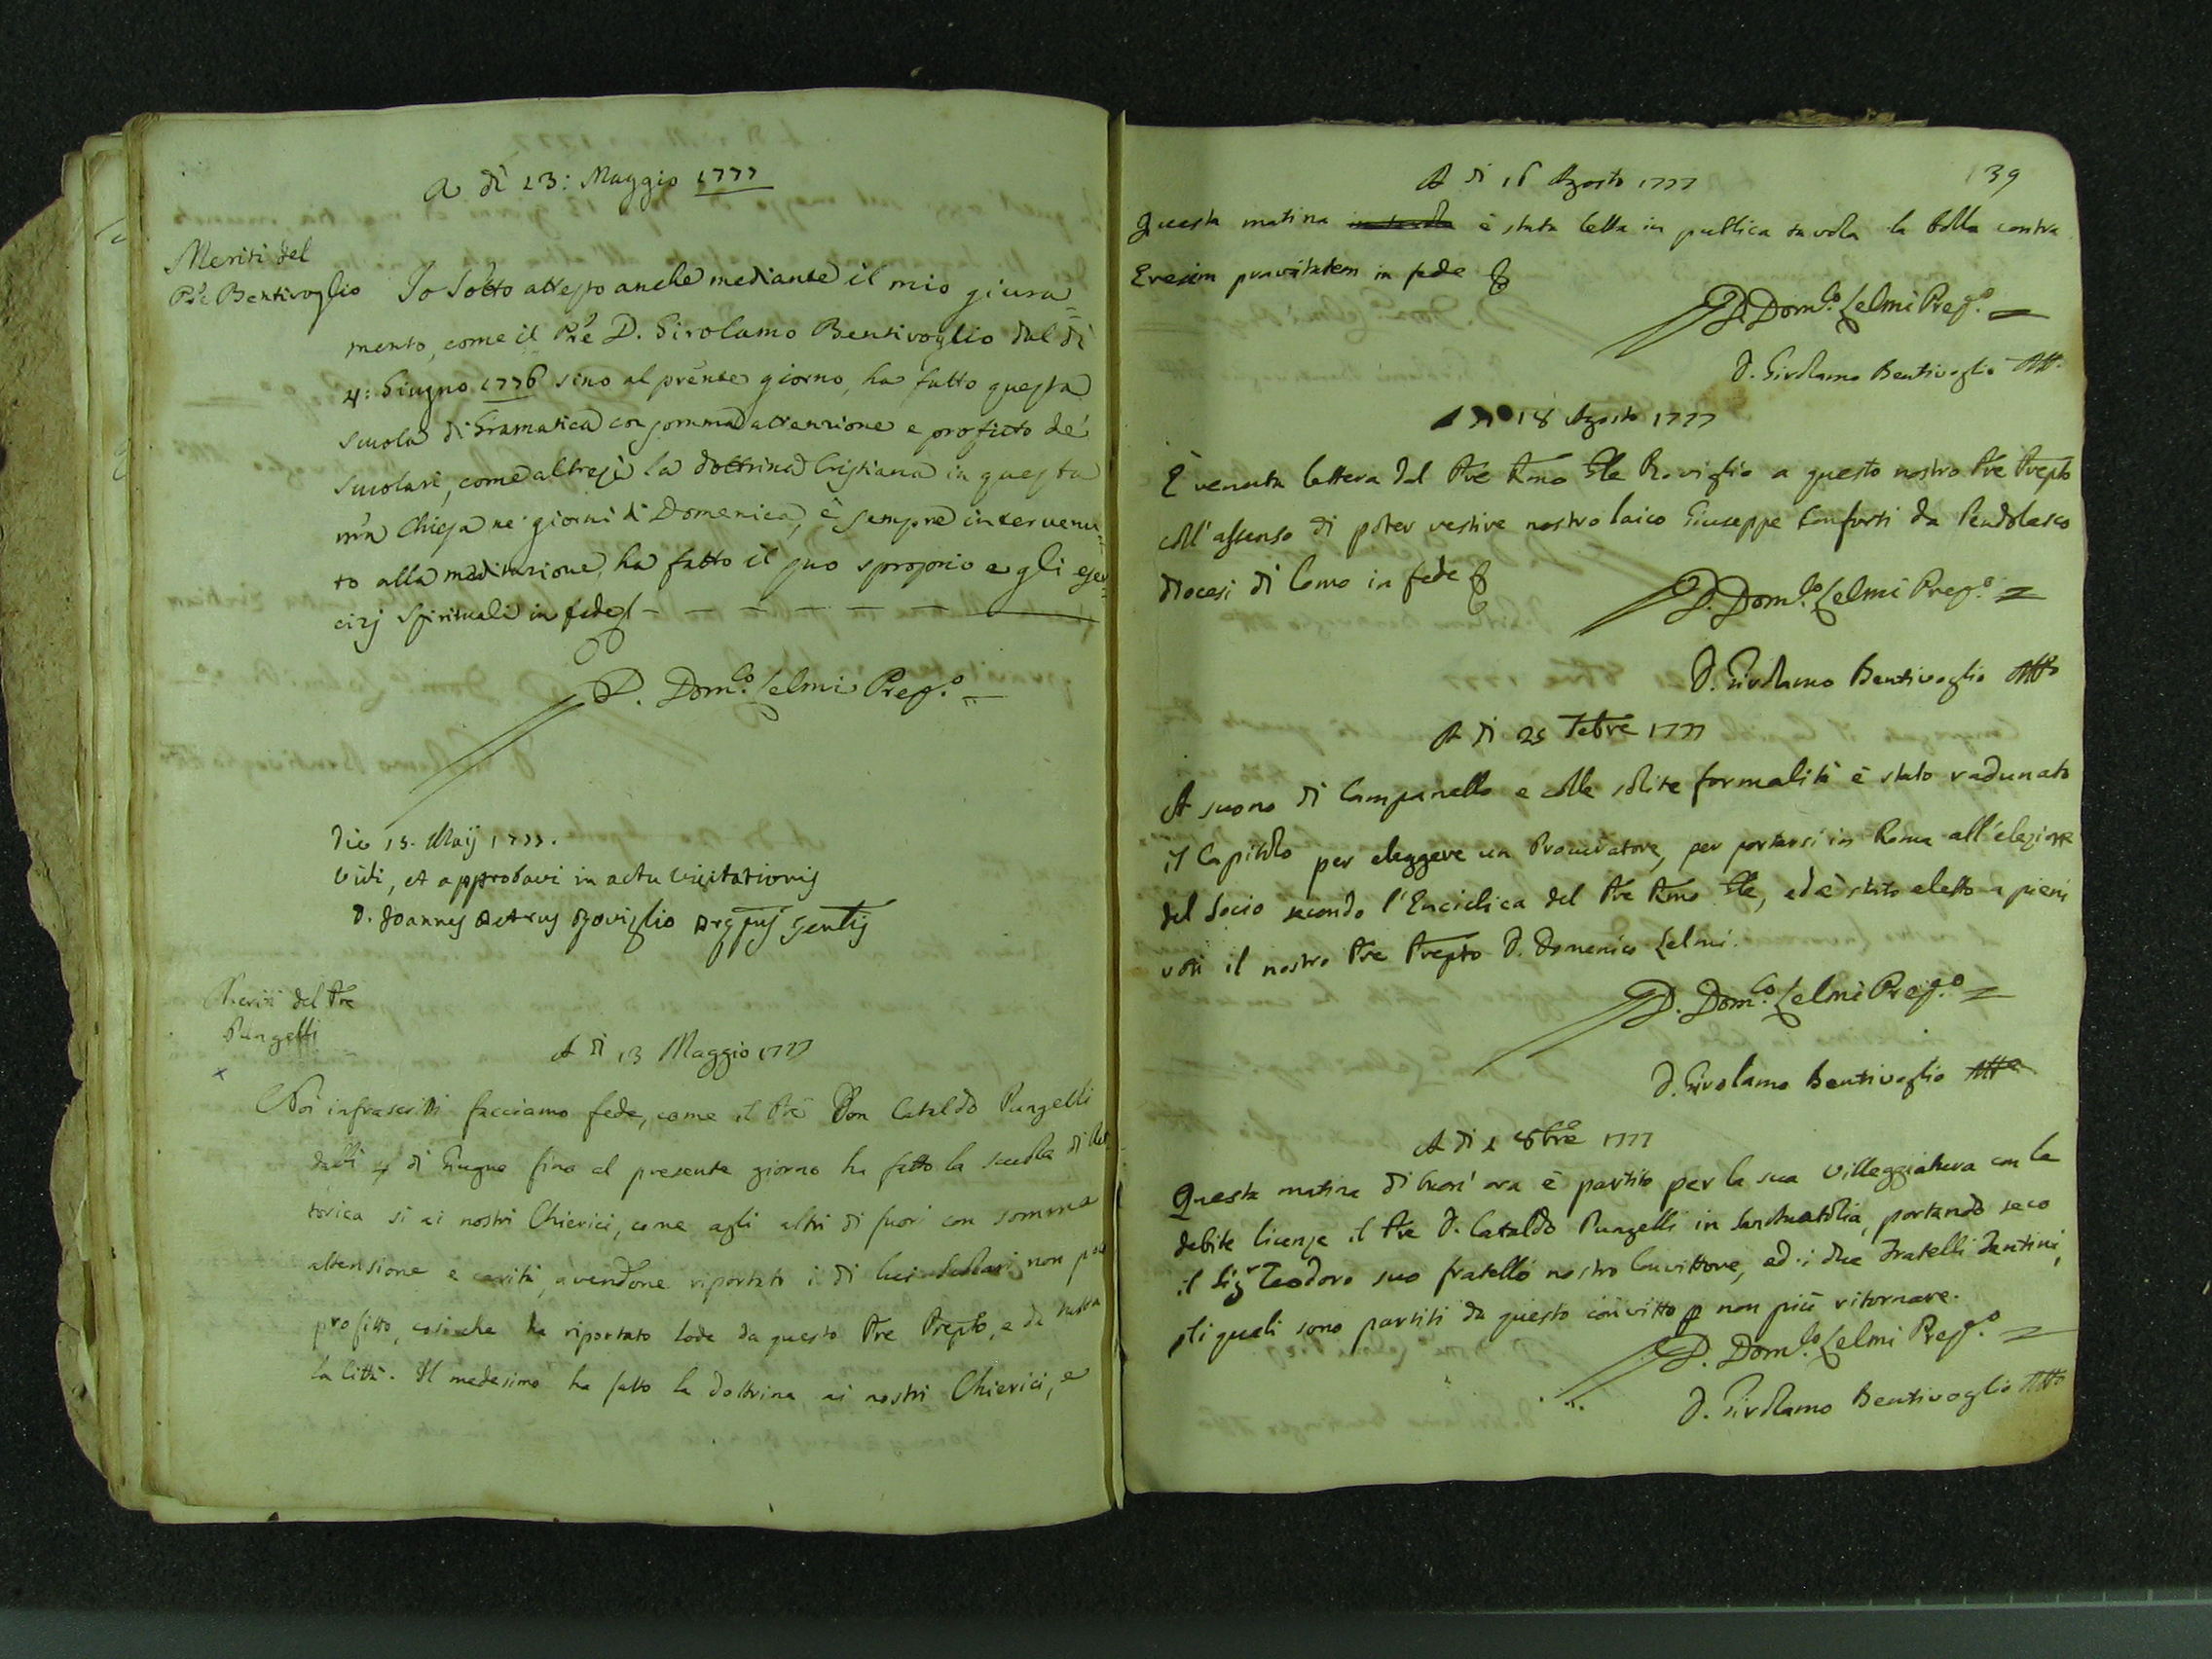 A dì 13: Maggio 1777
Meriti del
Pr̃e Bentivoglio
Io Sotto attesto anche mediante il mio giura=
mento, come il Pr̃e D. Girolamo Bentivoglio dal dì
4: Giugno 1776 sino al pr̃ente giorno, ha fatto questa
scuola di Gramatica con somma attenzione e profitto de'
scuolari, come altresì la dottrina Cristiana in questa
nr̃a Chiesa ne' giorni di Domenica, è sempre intervenu=
to alla meditazione, ha fatto il suo sproprio e gli eser=
cizj Spirituali in fede
D. Dom.co Lelmi Prep.o
Die 15. Maij 1777.
Vidi, et approbavi in actu visitationis
D. Joannes Petrus Roviglio Prep̃us Gen̄lis
Meriti del Pr̃e
Pungelli
A dì 13 Maggio 1777
Noi infrascritti facciamo fede, come il Pr̃e Don Cataldo Pungelli
dalli 4 di Giugno fino al presente giorno ha fatto la scuola di Ret
torica sì ai nostri Chierici, come agli altri di fuori con somma
attensione e carità, avendone riportato i di lui Scolari non poco
profitto, cosicche ha riportato lode da questo Pr̃e Prep̃to, e da tutta
la Città. Il medesimo ha fatto la dottrina ai nostri Chierici, e
39
A dì 16 Agosto 1777
Questa matina è stata letta in publica tavola la bolla contra
Eresim pravitatem in fede
D. Dom.co Lelmi Prep.o
D. Girolamo Bentivoglio Att.
A dì 18 Agosto 1777
È venuta lettera dal Pr̃e Rm̃o Gl̃e Roviglio a questo nostro Pr̃e Prep̃to
coll'assenso di poter vestire nostro laico Giuseppe Conforti da Pendolasco
diocesi di Como in fede
D. Dom.co Lelmi Prep.o
D. Girolamo Bentivoglio Att.o
A dì 25 7bre 1777
A suono di Campanello e colle solite formalità è stato radunato
il Capitolo per eleggere un Procuratore, per portarsi in Roma all'elezione
del Socio secondo l'Enciclica del Pr̃e Rm̃o Gl̃e, ed è stato eletto a pieni
voti il nostro Pr̃e Prep̃to D. Domenico Lelmi.
D. Dom.co Lelmi Prep.o
D. Girolamo Bentivoglio Att.o
A dì 2 8bre 1777
Questa matina di buon'ora è partito per la sua villeggiatura con le
debite licenze il Pr̃e D. Cataldo Pungelli in Santnatolia, portando seco
il Sig.r Teodoro suo fratello nostro Convittore, ed i due Fratelli Santini,
gli quali sono partiti da questo convitto p non più ritornare.
D. Dom.co Lelmi Prep.o
D. Girolamo Bentivoglio Att.o